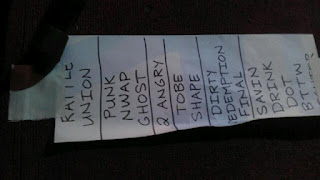 RATTLE
UNION
PUNK
NWAP
GHOST
2 ANGRY
TOBE
SHAPE
DIRTY
REDEMPTION
FINAL
SAVIN
DRINK
DOT
BTTW